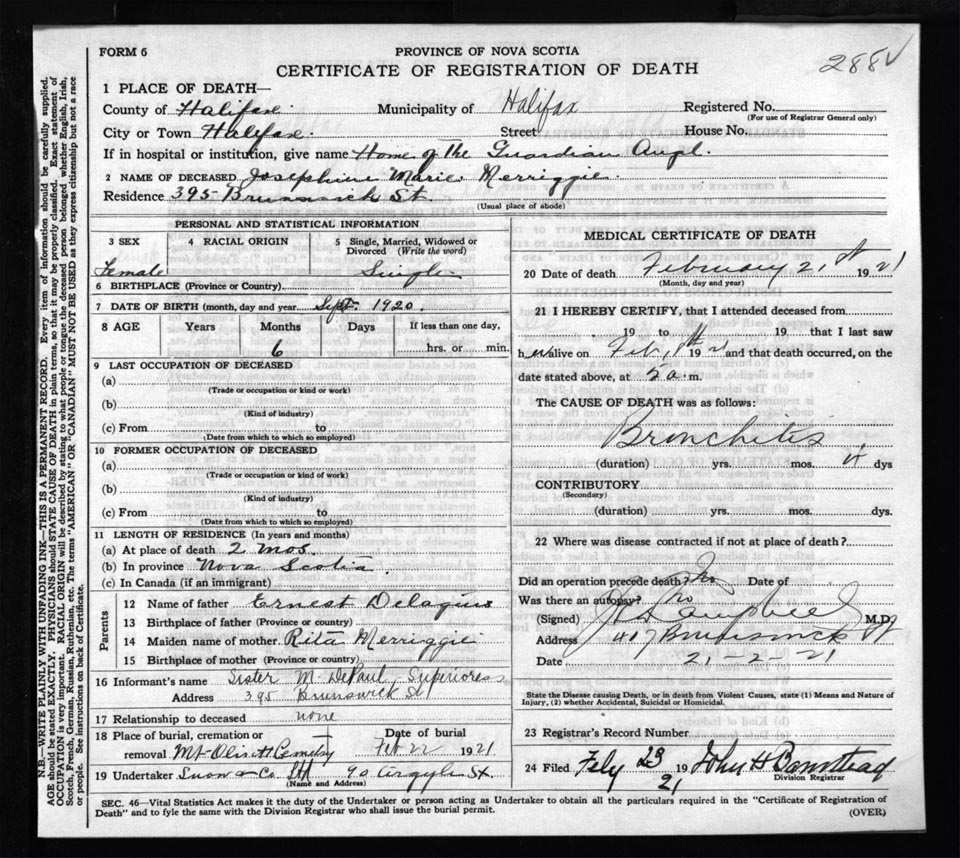 FORM 6
PROVINCE OF NOVA SCOTIA
288
CERTIFICATE OF REGISTRATION OF DEATH
1 PLACE OF DEATH—
County of Halifax. Municipality of Halifax Registered No.
(For use of Registrar General only)
City or Town Halifax. Street House No.
If in hospital or institution, give name Home of the Guardian Angl.
2 NAME OF DECEASED Josephine Marie Merriggie.
Residence 395 Brunswick St.
(Usual place of abode)
PERSONAL AND STATISTICAL INFORMATION
3 SEX 4 RACIAL ORIGIN 5 Single, Married, Widowed or Divorced (Write the word)
Female Single
6 BIRTHPLACE (Province or Country)
7 DATE OF BIRTH (month, day and year Sept. 1920.
8 AGE Years Months Days If less than one day,
6 hrs. or min.
9 LAST OCCUPATION OF DECEASED
(a)
(Trade or occupation or kind or work)
(b)
(Kind of industry)
(c) From to
(Date from which to which so employed)
10 FORMER OCCUPATION OF DECEASED
(a)
(Trade or occupation or kind of work)
(b)
(Kind of industry)
(c) From to
(Date from which to which so employed)
11 LENGTH OF RESIDENCE (In years and months)
(a) At place of death 2 mos.
(b) In province Nova Scotia.
(c) In Canada (if an immigrant)
Parents
12 Name of father Ernest
13 Birthplace of father (Province or country)
14 Maiden name of mother. Rita Merriggie
15 Birthplace of mother (Province or country)
16 Informant's name Sister M. DePaul, Superioress
Address 395 Brunswick St
17 Relationship to deceased none
18 Place of burial, cremation or Date of burial
removal Mt. Olivet Cemetry Feb 22 1921
19 Undertaker Snow & Co. Ltd 90 Argyle St.
(Name and Address)
MEDICAL CERTIFICATE OF DEATH
20 Date of death February 21st 1921
(Month, day and year)
21 I HEREBY CERTIFY, that I attended deceased from
19 to 19 that I last saw
h er alive on Feb, 19 21 and that death occurred, on the
date stated above, at 5 a m.
The CAUSE OF DEATH was as follows:
Bronchitis
(duration) yrs. mos. 4 dys
CONTRIBUTORY
(Secondary)
(duration) yrs. mos. dys.
22 Where was disease contracted if not at place of death?
Did an operation precede death? No Date of
Was there an autopsy? No
(Signed) Campbell M.D.
Address 407 Brunswick St
Date 21-2-21
State the Disease causing Death, or in death from Violent Causes, state (1) Means and Nature of
Injury, (2) whether Accidental, Suicidal or Homicidal.
23 Registrar's Record Number
24 Filed Feby 23 19 21 John H Barnstead
Division Registrar
SEC. 46—Vital Statistics Act makes it the duty of the Undertaker or person acting as Undertaker to obtain all the particulars required in the "Certificate of Registration of
Death" and to fyle the same with the Division Registrar who shall issue the burial permit.
(OVER)
N.B.—WRITE PLAINLY WITH UNFADING INK—THIS IS A PERMANENT RECORD. Every item of information should be carefully supplied.
AGE should be stated EXACTLY. PHYSICIANS should STATE CAUSE OF DEATH in plain terms, so that it may be properly classified. Exact statement of
OCCUPATION is very important. RACIAL ORIGIN will be described by stating to what people or tongue the deceased person belonged whether English, Irish,
Scotch, French, German, Russian, Ruthenian, etc. The terms "AMERICAN" OR "CANADIAN" MUST NOT BE USED as they express citizenship but not a race
or people. See instructions on back of Certificate.